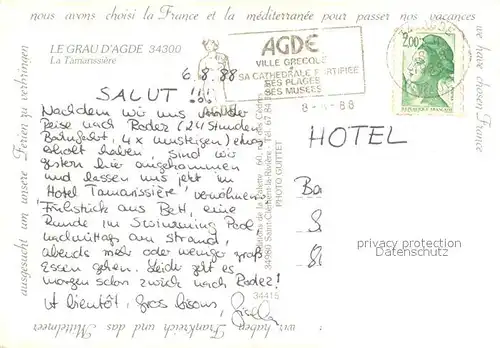 nous avons choisi la France et la méditerranée pour passer nos vacances
we have chosen France
LE GRAU D'AGDE 34300
La Tamarissière
AGDE
VILLE GRECQUE
SA CATHEDRALE FORTIFIEE
SES PLAGES
SES MUSEES
AGDE
8-8-88
2,00
6.8.88
SALUT !!!
Nachdem wir uns von der
Reise nach Rodez (24 Stunden
Bahnfahrt, 4x umsteigen) etwas
erholt haben, sind wir
gestern hier angekommen
und lassen uns jetzt im
"Hotel Tamarissière" verwöhnen.
Frühstück ans Bett, eine
Runde im Swimming Pool,
nachmittags am Strand,
abends mehr oder weniger groß
Essen gehen. Leider geht es
morgen schon zurück nach Rodez!
A bientôt, Gros bisous, Gisela
HOTEL
Ba
S
privacy protection
Datenschutz
PHOTO GUITTET
34415
ausgesucht um unsere Ferien zu verbringen
wir haben Frankreich und das Mittelmeer